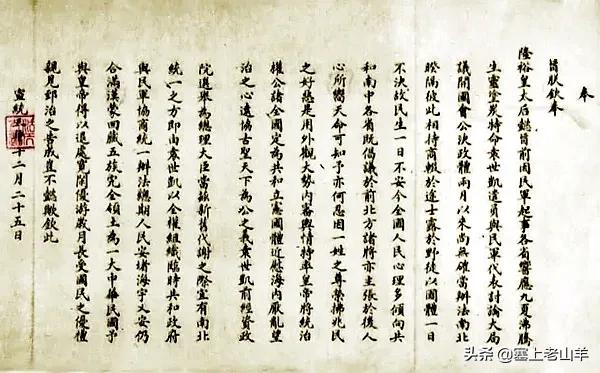 奉
旨朕欽奉
隆裕皇太后懿旨前因民軍起事各省響應九夏沸騰
生靈塗炭特命袁世凱遣員與民軍代表討論大局
議開國會公決政體兩月以來尚無確當辦法南北
暌隔彼此相持商輟於途士露於野徒以國體一日
不決故民生一日不安今全國人民心理多傾向共
和南中各省既倡議於前北方諸將亦主張於後人
心所嚮天命可知予亦何忍因一姓之尊榮拂兆民
之好惡是用外觀大勢內審輿情特率皇帝將統治
權公諸全國定為共和立憲國體近慰海內厭亂望
治之心遠協古聖天下為公之義袁世凱前經資政
院選舉為總理大臣當茲新舊代謝之際宜有南北
統一之方即由袁世凱以全權組織臨時共和政府
與民軍協商統一辦法總期人民安堵海宇乂安仍
合滿漢蒙回藏五族完全領土為一大中華民國予
與皇帝得以退處寬閒優游歲月長受國民之優禮
親見郅治之告成豈不懿歟欽此
宣統三年十二月二十五日
头条 @塞上老山羊